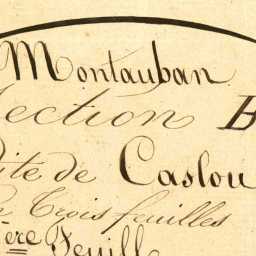 Montauban
Section B
Dite de Caslou
Trois feuilles
ère Feuill